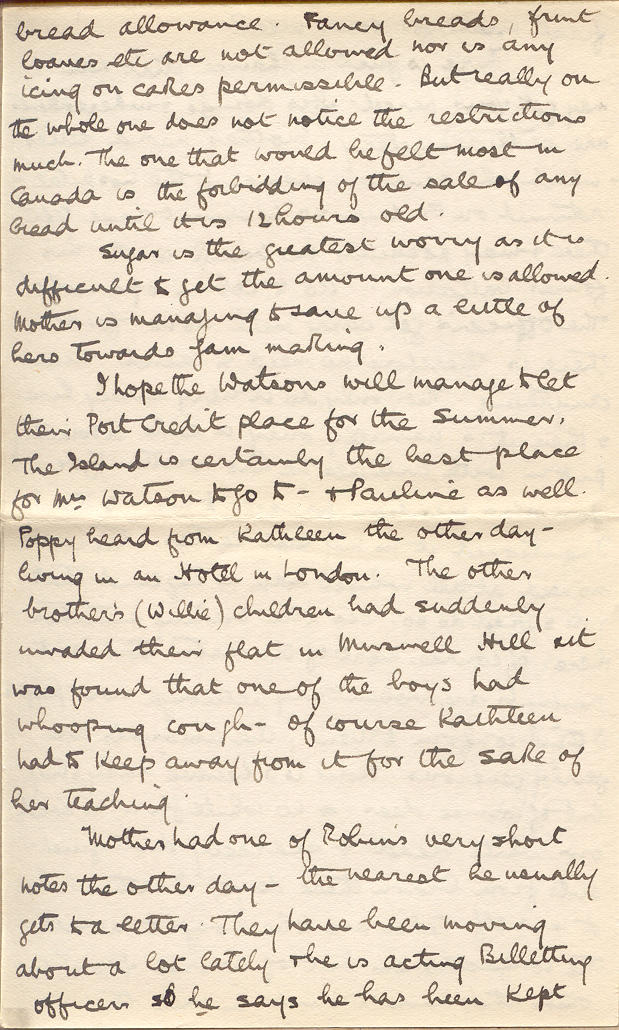 bread allowance. Fancy breads, fruit
loaves etc are not allowed nor is any
icing on cakes permissible. But really on
the whole one does not notice the restrictions
much. The one that would be felt most in
Canada is the forbidding of the sale of any
bread until it is 12 hours old.
Sugar is the greatest worry as it is
difficult to get the amount one is allowed.
Mother is managing to save up a little of
hers towards jam making.
I hope the Watsons will manage to let
their Port Credit place for the summer.
The Island is certainly the best place
for Mrs Watson to go to - + Pauline as well.
Poppy heard from Kathleen the other day -
living in an Hotel in London. The other
brother's (Willie) children had suddenly
invaded their flat in Muswell Hill + it
was found that one of the boys had
whooping cough - of course Kathleen
had to keep away from it for the sake of
her teaching.
Mother had one of Robin's very short
notes the other day - the nearest he usually
gets to a letter. They have been moving
about a lot lately + he is acting Billetting
officer so he says he has been kept